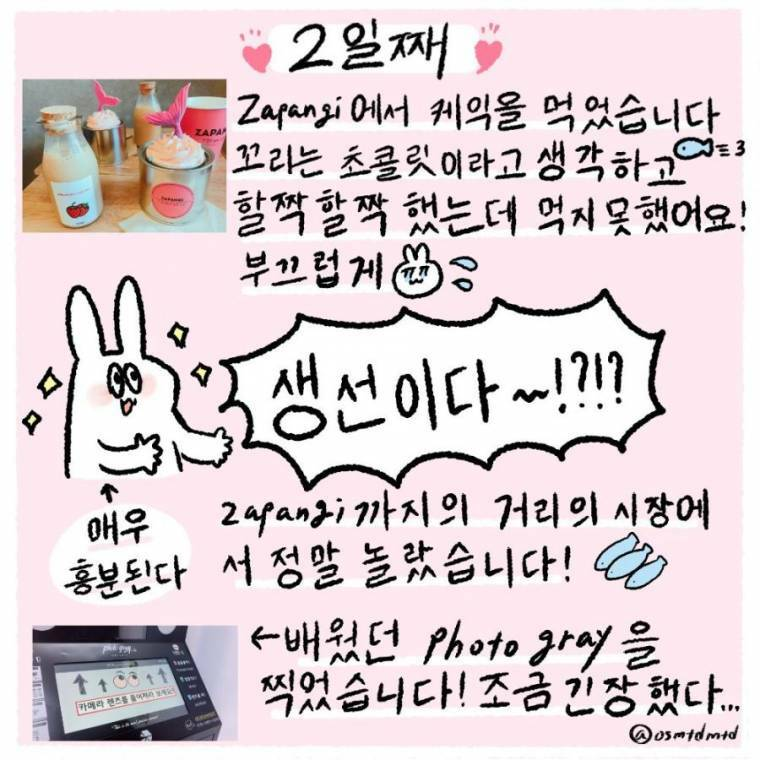 2일째
Zapangi에서 케익올 먹었습니다
꼬리는 초콜릿이라고 생각하고
할짝할짝 했는데 먹지못했어요!
부끄럽게
생선이다~!?!?
매우
흥분된다
zapangi까지의 거리의 시장에
서 정말 놀랐습니다!
←배웠던 photo gray을
찍었습니다! 조금긴장했다...
카메라 렌즈를 들여다 보세요!
ZAPAN
ZAPANGI
@osmtdmtd